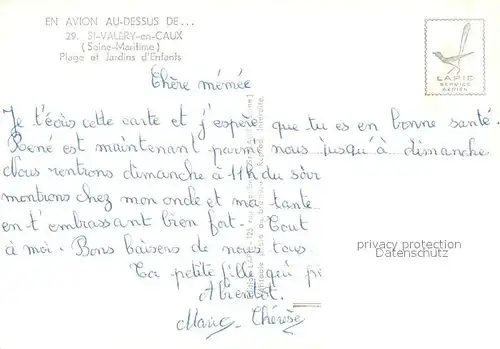 EN AVION AU-DESSUS DE...
29. St-VALERY-en-CAUX
(Seine-Maritime)
Plage et Jardins d'Enfants
LAPIE
SERVICE
AERIEN
Chère mémée
Je t'écris cette carte et j'espère que tu es en bonne santé.
René est maintenant parmé nous jusqu'à dimanche
Nous rentrons dimanche à 11h du soir
montrons chez mon oncle et ma tante
en t'embrassant bien fort. Tout
à moi. Bons baisers de nous tous.
Ta petite fille qui
A bientôt.
Marie-Thérèse
privacy protection
Datenschutz